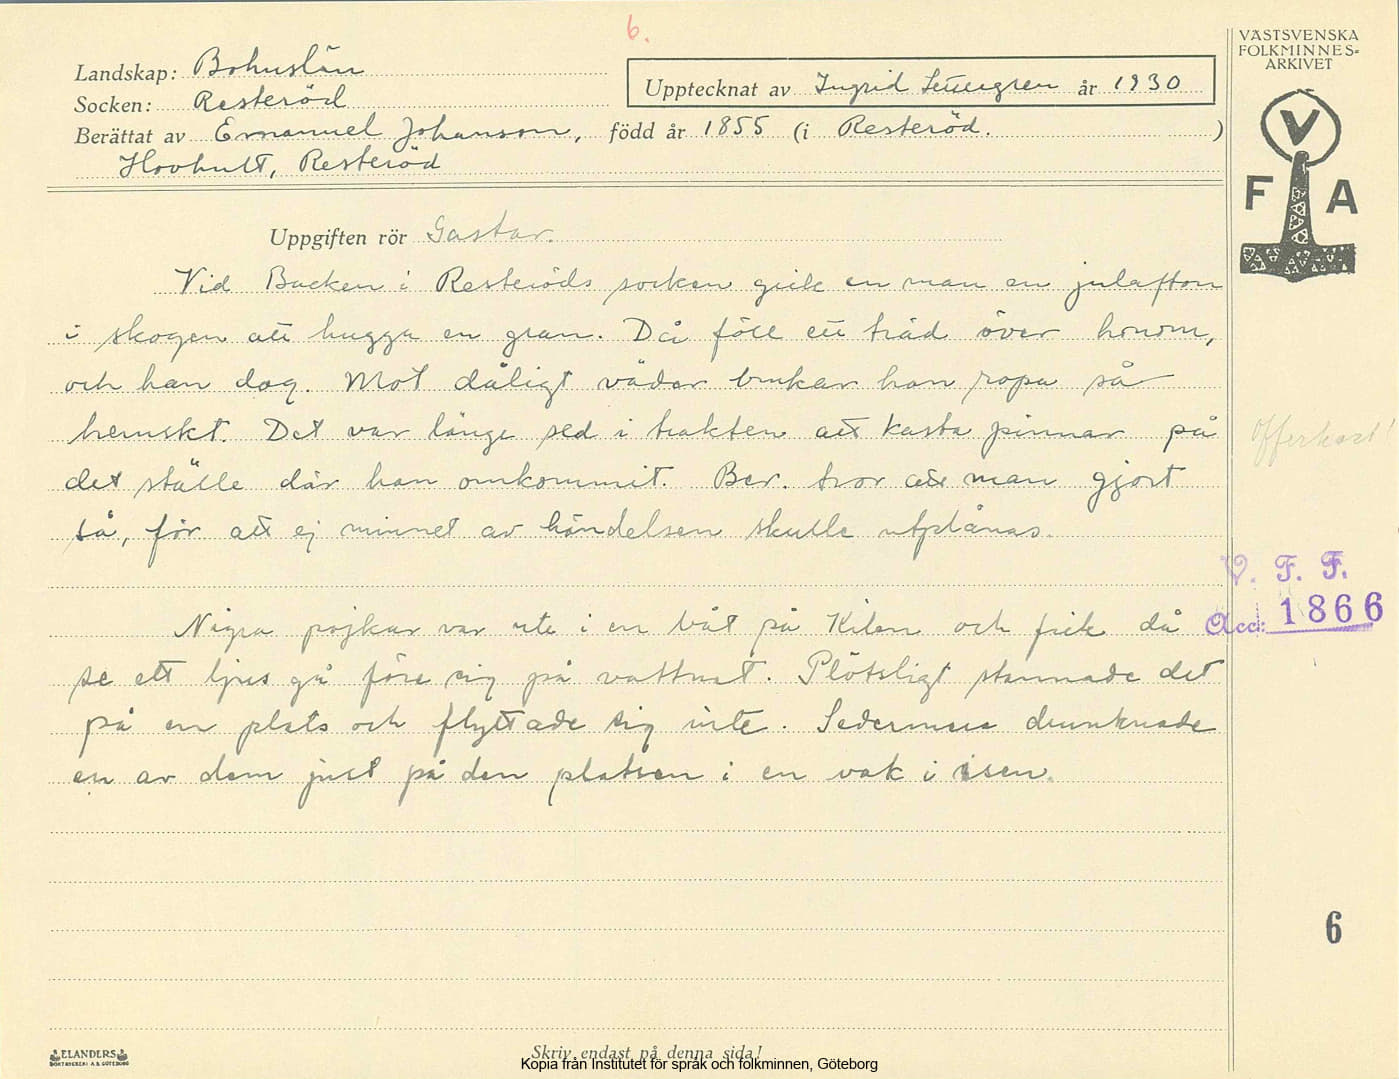 6.
VÄSTSVENSKA
FOLKMINNES-
ARKIVET
Landskap: Bohuslän
Upptecknat av Ingrid år 1930
Socken: Resteröd
Berättat av Emanuel Johanson, född år 1855 (i Resteröd. )
Hovhult, Resteröd
V
F A
Uppgiften rör Gastar.
Vid Backen i Resteröds socken gick en man en julafton
i skogen att hugga en gran. Då föll ett träd över honom,
och han dog. Mot dåligt väder brukar han ropa så
hemskt. Det var länge sed i trakten att kasta pinnar på
Offerkast!
det ställe där han omkommit. Ber. tror att man gjort
så, för att ej minnet av händelsen skulle utplånas.
V. F. F.
Acc: 1866
Några pojkar var ute i en båt på Kilen och fick då
se ett ljus gå före sig på vattnet. Plötsligt stannade det
på en plats och flyttade sig inte. Sedermera drunknade
en av dem just på den platsen i en vak i isen.
6
ELANDERS
BOKTRYCKERI A.B. GÖTEBORG
Skriv endast på denna sida!
Kopia från Institutet för språk och folkminnen, Göteborg